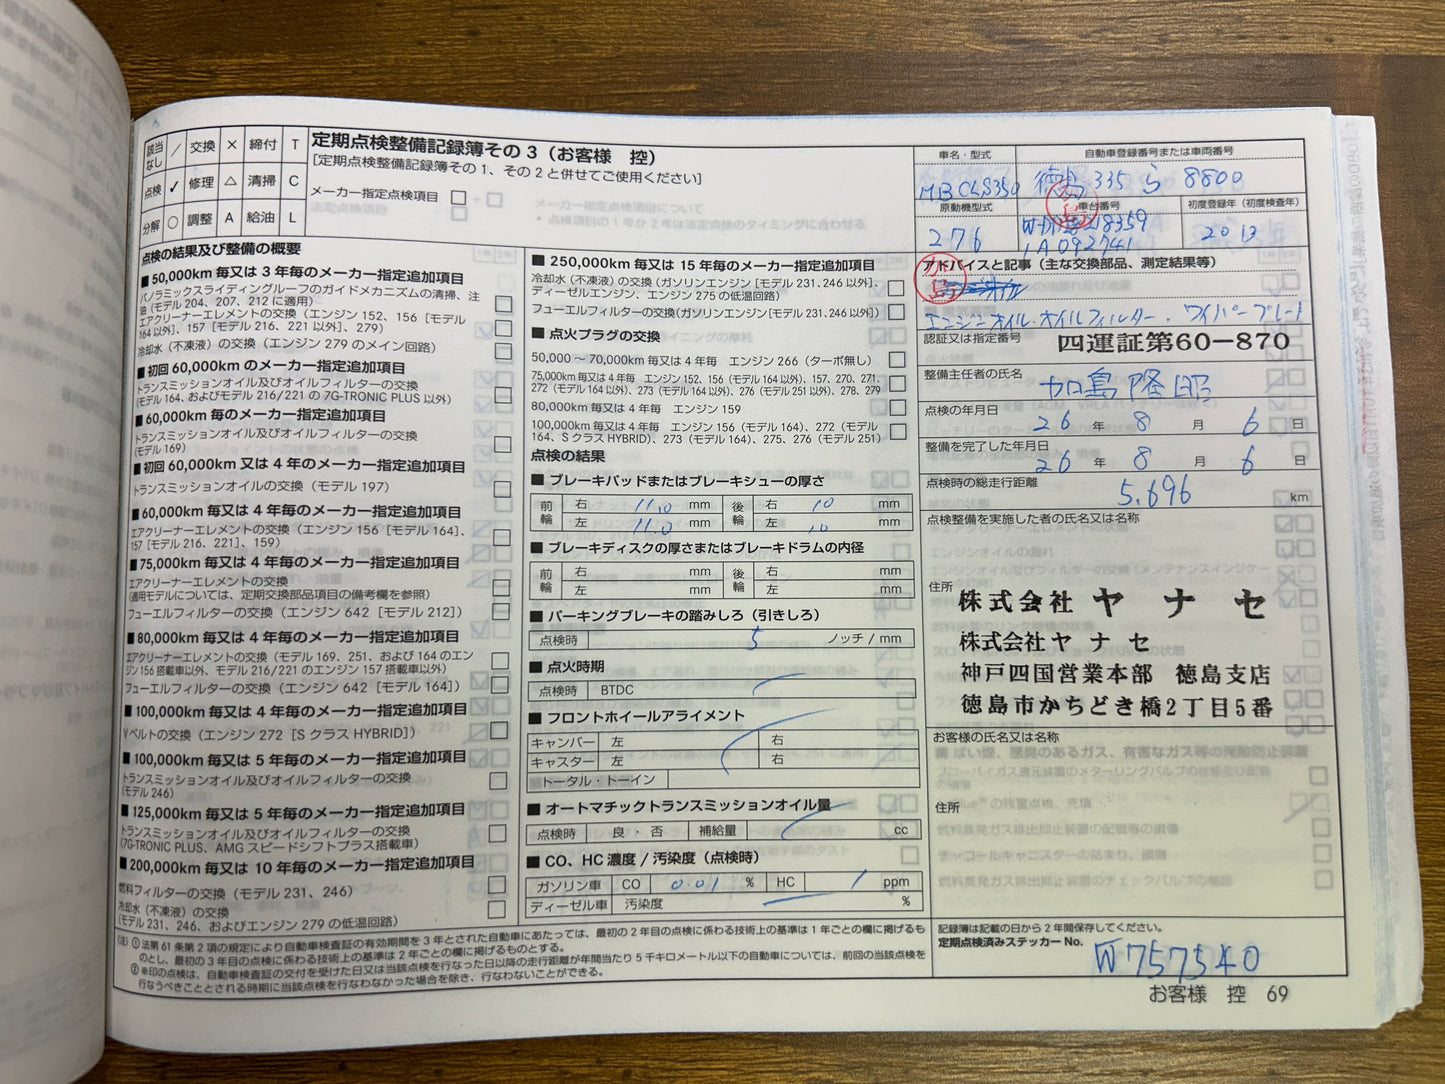 該当なし / 交換 × 締付 T
点検 ✓ 修理 △ 清掃 C
分解 ○ 調整 A 給油 L
定期点検整備記録簿その3（お客様　控）
[定期点検整備記録簿その1、その2と併せてご使用ください]
メーカー指定点検項目
点検の結果及び整備の概要
■50,000km毎又は3年毎のメーカー指定追加項目
パノラミックスライディングルーフのガイドメカニズムの清掃、注
油（モデル204、207、212に適用）
エアクリーナーエレメントの交換（エンジン152、156［モデル
164以外］、157［モデル216、221以外］、279）
冷却水（不凍液）の交換（エンジン279のメイン回路）
■初回60,000kmのメーカー指定追加項目
トランスミッションオイル及びオイルフィルターの交換
（モデル164、およびモデル216/221の7G-TRONIC PLUS以外）
■60,000km毎のメーカー指定追加項目
トランスミッションオイル及びオイルフィルターの交換
（モデル169）
■初回60,000km又は4年毎のメーカー指定追加項目
トランスミッションオイルの交換（モデル197）
■60,000km毎又は4年毎のメーカー指定追加項目
エアクリーナーエレメントの交換（エンジン156［モデル164］、
157［モデル216、221］、159）
■75,000km毎又は4年毎のメーカー指定追加項目
エアクリーナーエレメントの交換
（適用モデルについては、定期交換部品項目の備考欄を参照）
フューエルフィルターの交換（エンジン642［モデル212］）
■80,000km毎又は4年毎のメーカー指定追加項目
エアクリーナーエレメントの交換（モデル169、251、および164のエン
ジン156搭載車以外、モデル216/221のエンジン157搭載車以外）
フューエルフィルターの交換（エンジン642［モデル164］）
■100,000km毎又は4年毎のメーカー指定追加項目
Vベルトの交換（エンジン272［SクラスHYBRID］）
■100,000km毎又は5年毎のメーカー指定追加項目
トランスミッションオイル及びオイルフィルターの交換
（モデル246）
■125,000km毎又は5年毎のメーカー指定追加項目
トランスミッションオイル及びオイルフィルターの交換
（7G-TRONIC PLUS、AMGスピードシフトプラス搭載車）
■200,000km毎又は10年毎のメーカー指定追加項目
燃料フィルターの交換（モデル231、246）
冷却水（不凍液）の交換
（モデル231、246、およびエンジン279の低温回路）
■250,000km毎又は15年毎のメーカー指定追加項目
冷却水（不凍液）の交換（ガソリンエンジン［モデル231、246以外］、
ディーゼルエンジン、エンジン275の低温回路）
フューエルフィルターの交換（ガソリンエンジン［モデル231、246以外］）
■点火プラグの交換
50,000～70,000km毎又は4年毎　エンジン266（ターボ無し）
75,000km毎又は4年毎　エンジン152、156（モデル164以外）、157、270、271、
272（モデル164以外）、273（モデル164以外）、276（モデル251以外）、278、279
80,000km毎又は4年毎　エンジン159
100,000km毎又は4年毎　エンジン156（モデル164）、272（モデル
164、SクラスHYBRID）、273（モデル164）、275、276（モデル251）
点検の結果
■ブレーキパッドまたはブレーキシューの厚さ
前輪 右 11.0 mm 後輪 右 10 mm
左 11.0 mm 左 10 mm
■ブレーキディスクの厚さまたはブレーキドラムの内径
前輪 右 mm 後輪 右 mm
左 mm 左 mm
■パーキングブレーキの踏みしろ（引きしろ）
点検時 5 ノッチ/mm
■点火時期
点検時 BTDC
■フロントホイールアライメント
キャンバー 左 右
キャスター 左 右
トータル・トーイン
■オートマチックトランスミッションオイル量
点検時 良・否 補給量 cc
■CO、HC濃度/汚染度（点検時）
ガソリン車 CO 0.01 % HC 1 ppm
ディーゼル車 汚染度 %
車名・型式 自動車登録番号または車両番号
MB CLS350 徳島 335 ら 8800
原動機型式 車台番号 初度登録年（初度検査年）
276 2013
1A092741
アドバイスと記事（主な交換部品、測定結果等）
エンジンオイル・オイルフィルター、ワイパーブレード
認証又は指定番号 四運証第60-870
整備主任者の氏名
加島隆昭
点検の年月日
26 年 8 月 6 日
整備を完了した年月日
26 年 8 月 6 日
点検時の総走行距離
5,696 km
点検整備を実施した者の氏名又は名称
住所
株式会社ヤナセ
株式会社ヤナセ
神戸四国営業本部　徳島支店
徳島市かちどき橋2丁目5番
お客様の氏名又は名称
住所
（注）①法第61条第2項の規定により自動車検査証の有効期間を3年とされた自動車にあたっては、最初の2年目の点検に係わる技術上の基準は1年ごとの欄に掲げるも
のとし、最初の3年目の点検に係わる技術上の基準は2年ごとの欄に掲げるものとする。
②※印の点検は、自動車検査証の交付を受けた日又は当該点検を行なった日以降の走行距離が年間当たり5千キロメートル以下の自動車については、前回の当該点検を
行なうべきこととされる時期に当該点検を行なわなかった場合を除き、行なわないことができる。
記録簿は記載の日から2年間保存してください。
定期点検済みステッカーNo.
W757540
お客様　控　69